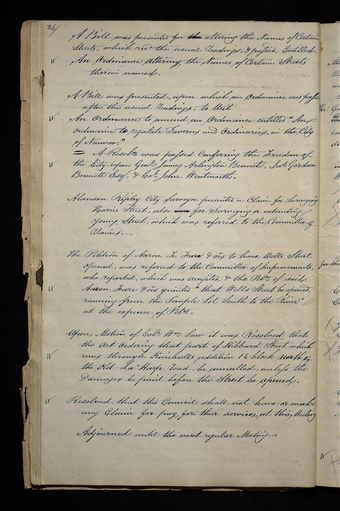 24/
A Bill, was presented for the altering the Names of Certain
Streets, which recd the usual Readings, & passed. Entitled,
" An Ordinance altering the Names of Certain Streets
therein named.
A Bill was presented, upon which an Ordinance was passed
after the usual Readings. To Wit
" An Ordinance to amend an Ordinance entitled "An
ordinance to regulate Taverns and Ordinaries, in the City
of Nauvoo."
A Resoln was passed Conferring the Freedom of
the City upon Genl. James Arlington Bennet, Jas. Gordon
Bennett Esqr. & Col. John Wentworth.
Alanson Ripley City Surveyor presented a Claim for Surveying
Street, also for Surveying & extending
Young Street, which was referred to the Committee of
Claims.
The Petition of Aaron & ors to have Wells Street
opened, was referred to the Committee of Improvements,
who reported, which was accepted, & the Petn. of said
Aaron & ors granted "that Wells Street be opened,
running from the Temple Lot South to the River"
at the expense of Petrs.
Upon Motion of Col. Wm. Law it was Resolved that
the act Ordering that part of Hibbard Street which
runs through Kimballs addition 1½ block north of
the Old La Harpe Road be annulled, unless the
Damages be paid before the Street be opened.
" Resolved, that this Council shall not have or make
any Claim for pay, for their services, at this Meeting
Adjourned until the next regular Meeting.